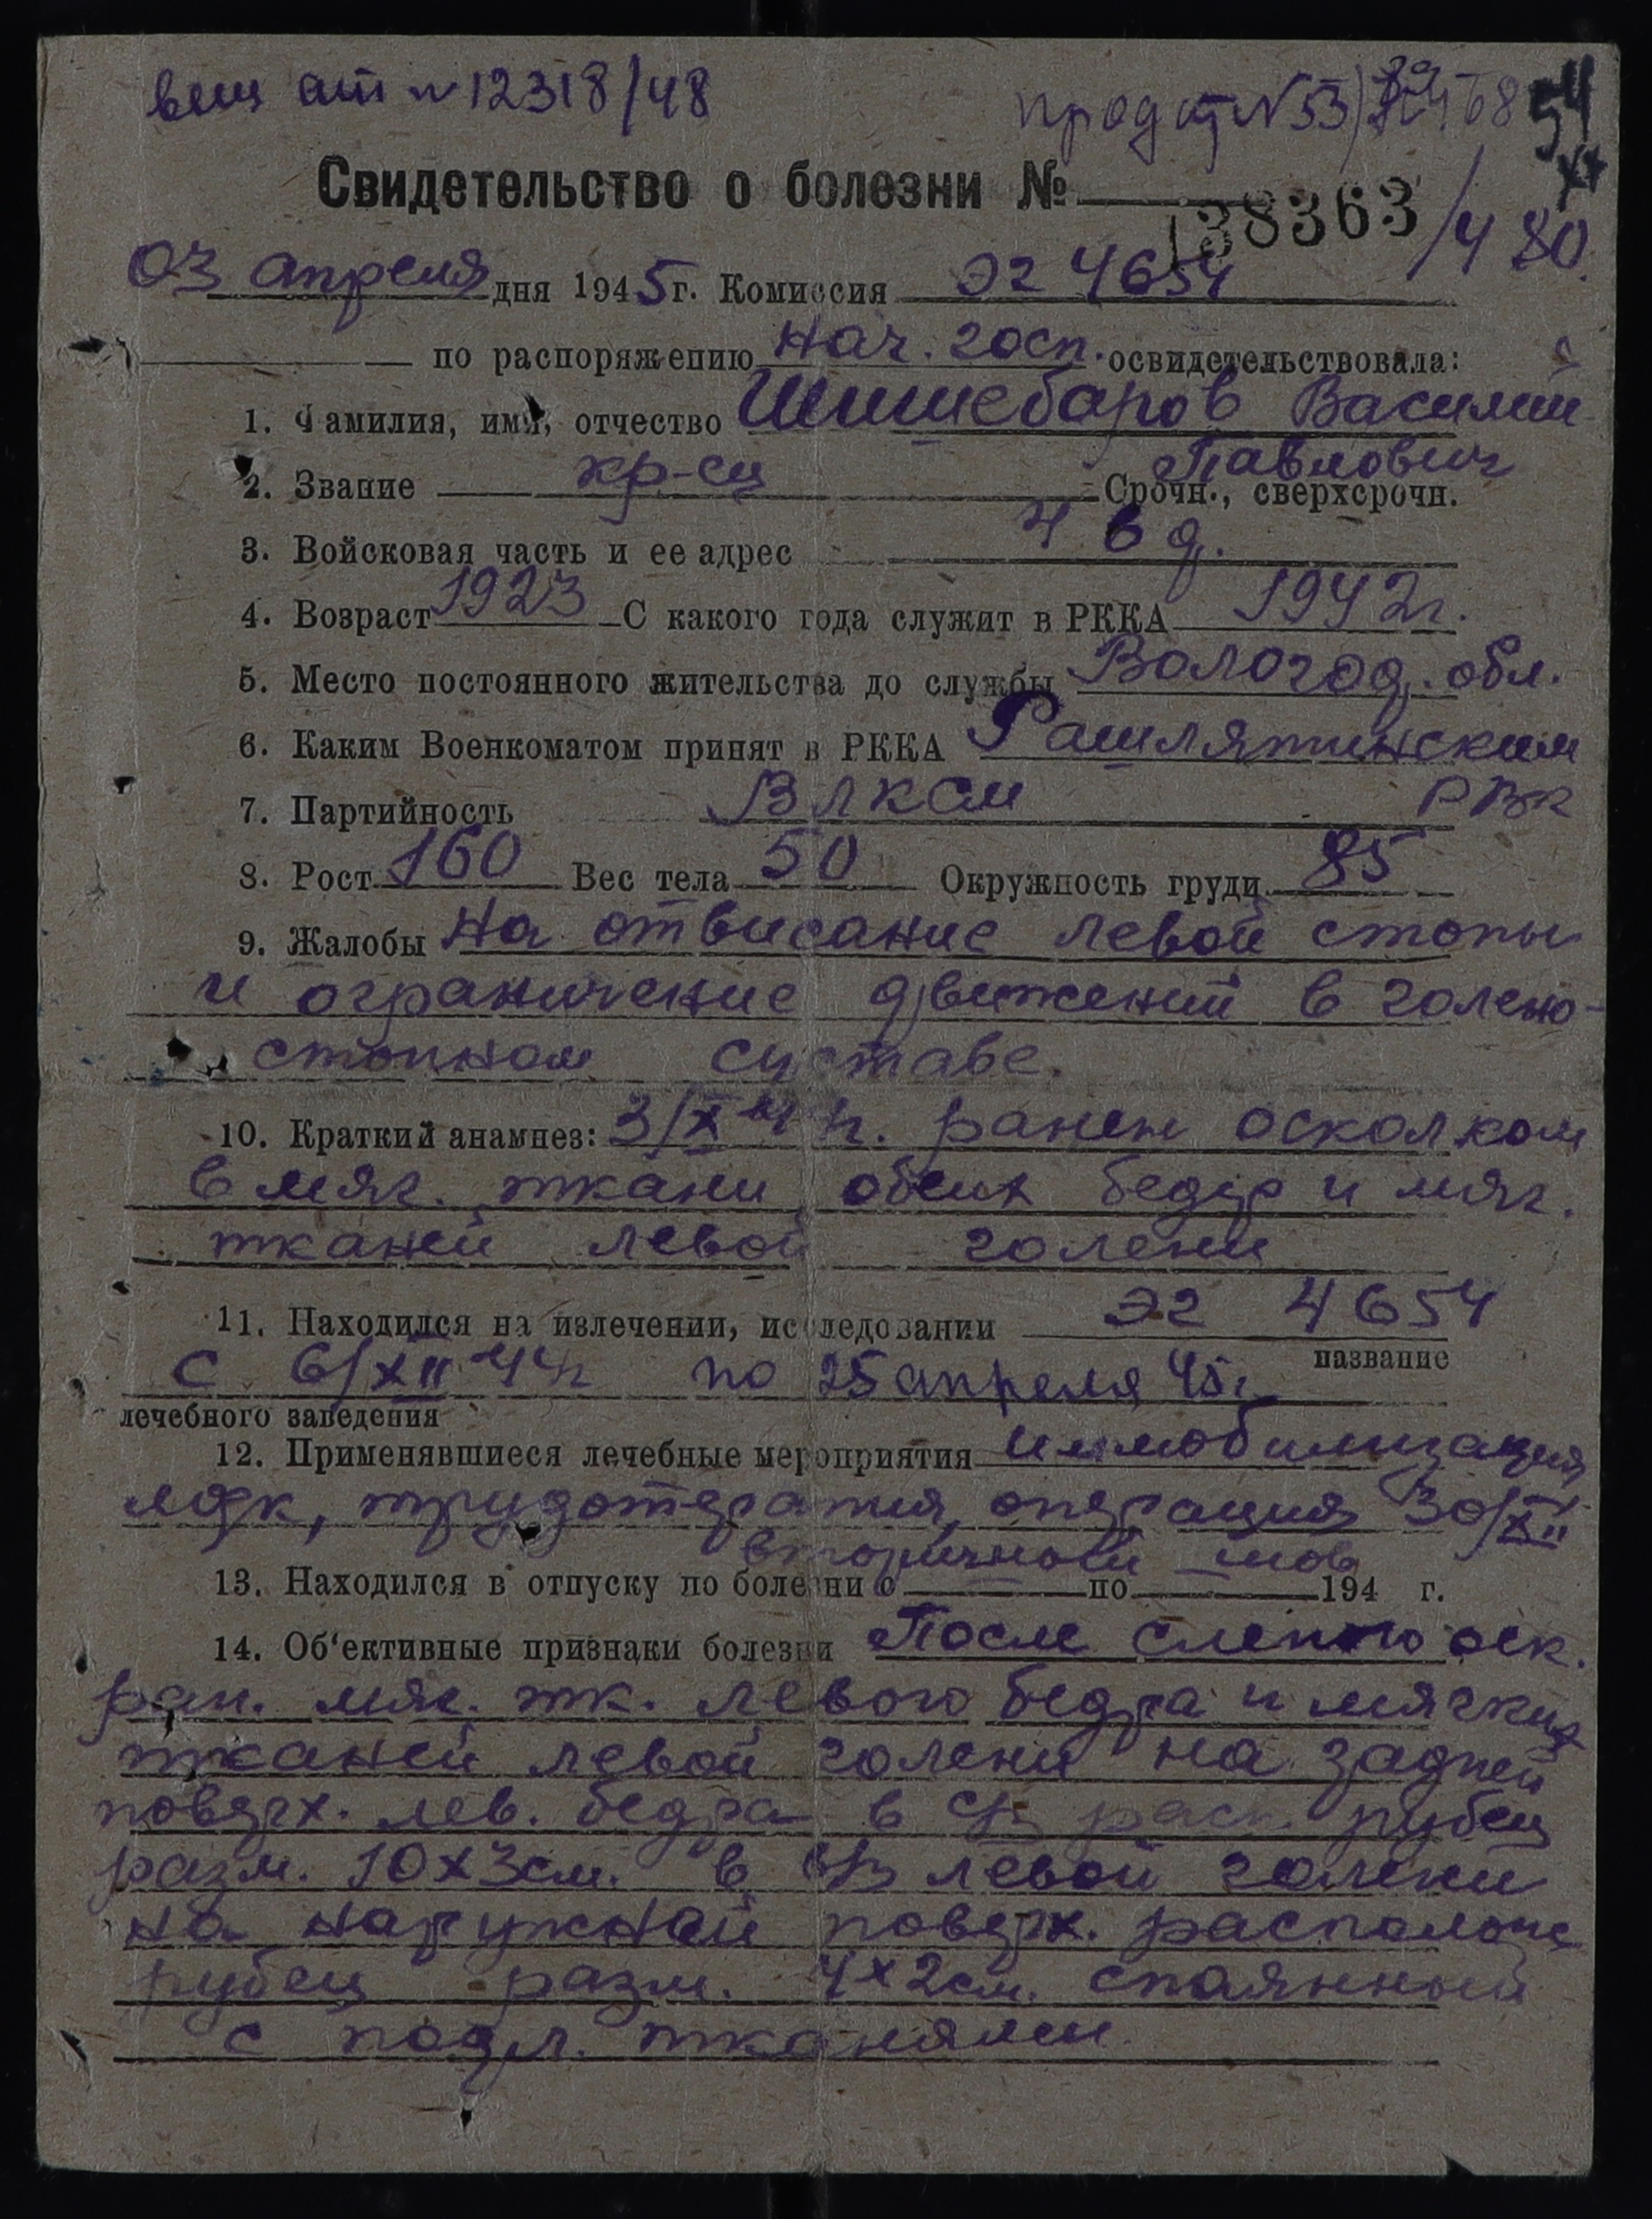 вещ ат № 12318/48
прод ат №53
54
Свидетельство о болезни №
138363 /480.
03 апреля дня 1945 г. Комиссия ЭГ 4654
по распоряжению нач. госп. освидетельствовала:
1. Фамилия, имя, отчество Шишебаров Василий
Павлович
2. Звание кр-ец Срочн., сверхсрочн.
3. Войсковая часть и ее адрес 4 6 д.
4. Возраст 1923 С какого года служит в РККА 1942 г.
5. Место постоянного жительства до службы Вологод. обл.
6. Каким Военкоматом принят в РККА Рашлятинским
РВК
7. Партийность ВЛКСМ
8. Рост 160 Вес тела 50 Окружность груди 85
9. Жалобы на отвисание левой стопы
и ограничение движений в голено-
стопном суставе.
10. Краткий анамнез: 3/X 44 г. ранен осколком
в мяг. ткани обеих бедер и мяг.
тканей левой голени
11. Находился на излечении, исследовании ЭГ 4654
название
с 6/XII 44 г по 25 апреля 45 г
лечебного заведения
12. Применявшиеся лечебные мероприятия Иммобилизация
лфк, трудотерапия, операция 30/XII
вторичной шов
13. Находился в отпуску по болезни с по 194 г.
14. Об'ективные признаки болезни После слепого оск.
ран. мяг. тк. левого бедра и мягких
тканей левой голени на задней
поверх. лев. бедра в с/3 расп. рубец
разм. 10х3см. в в/3 левой голени
на наружной поверх. располож
рубец разм. 4х2см. спаянный
с подл. тканями